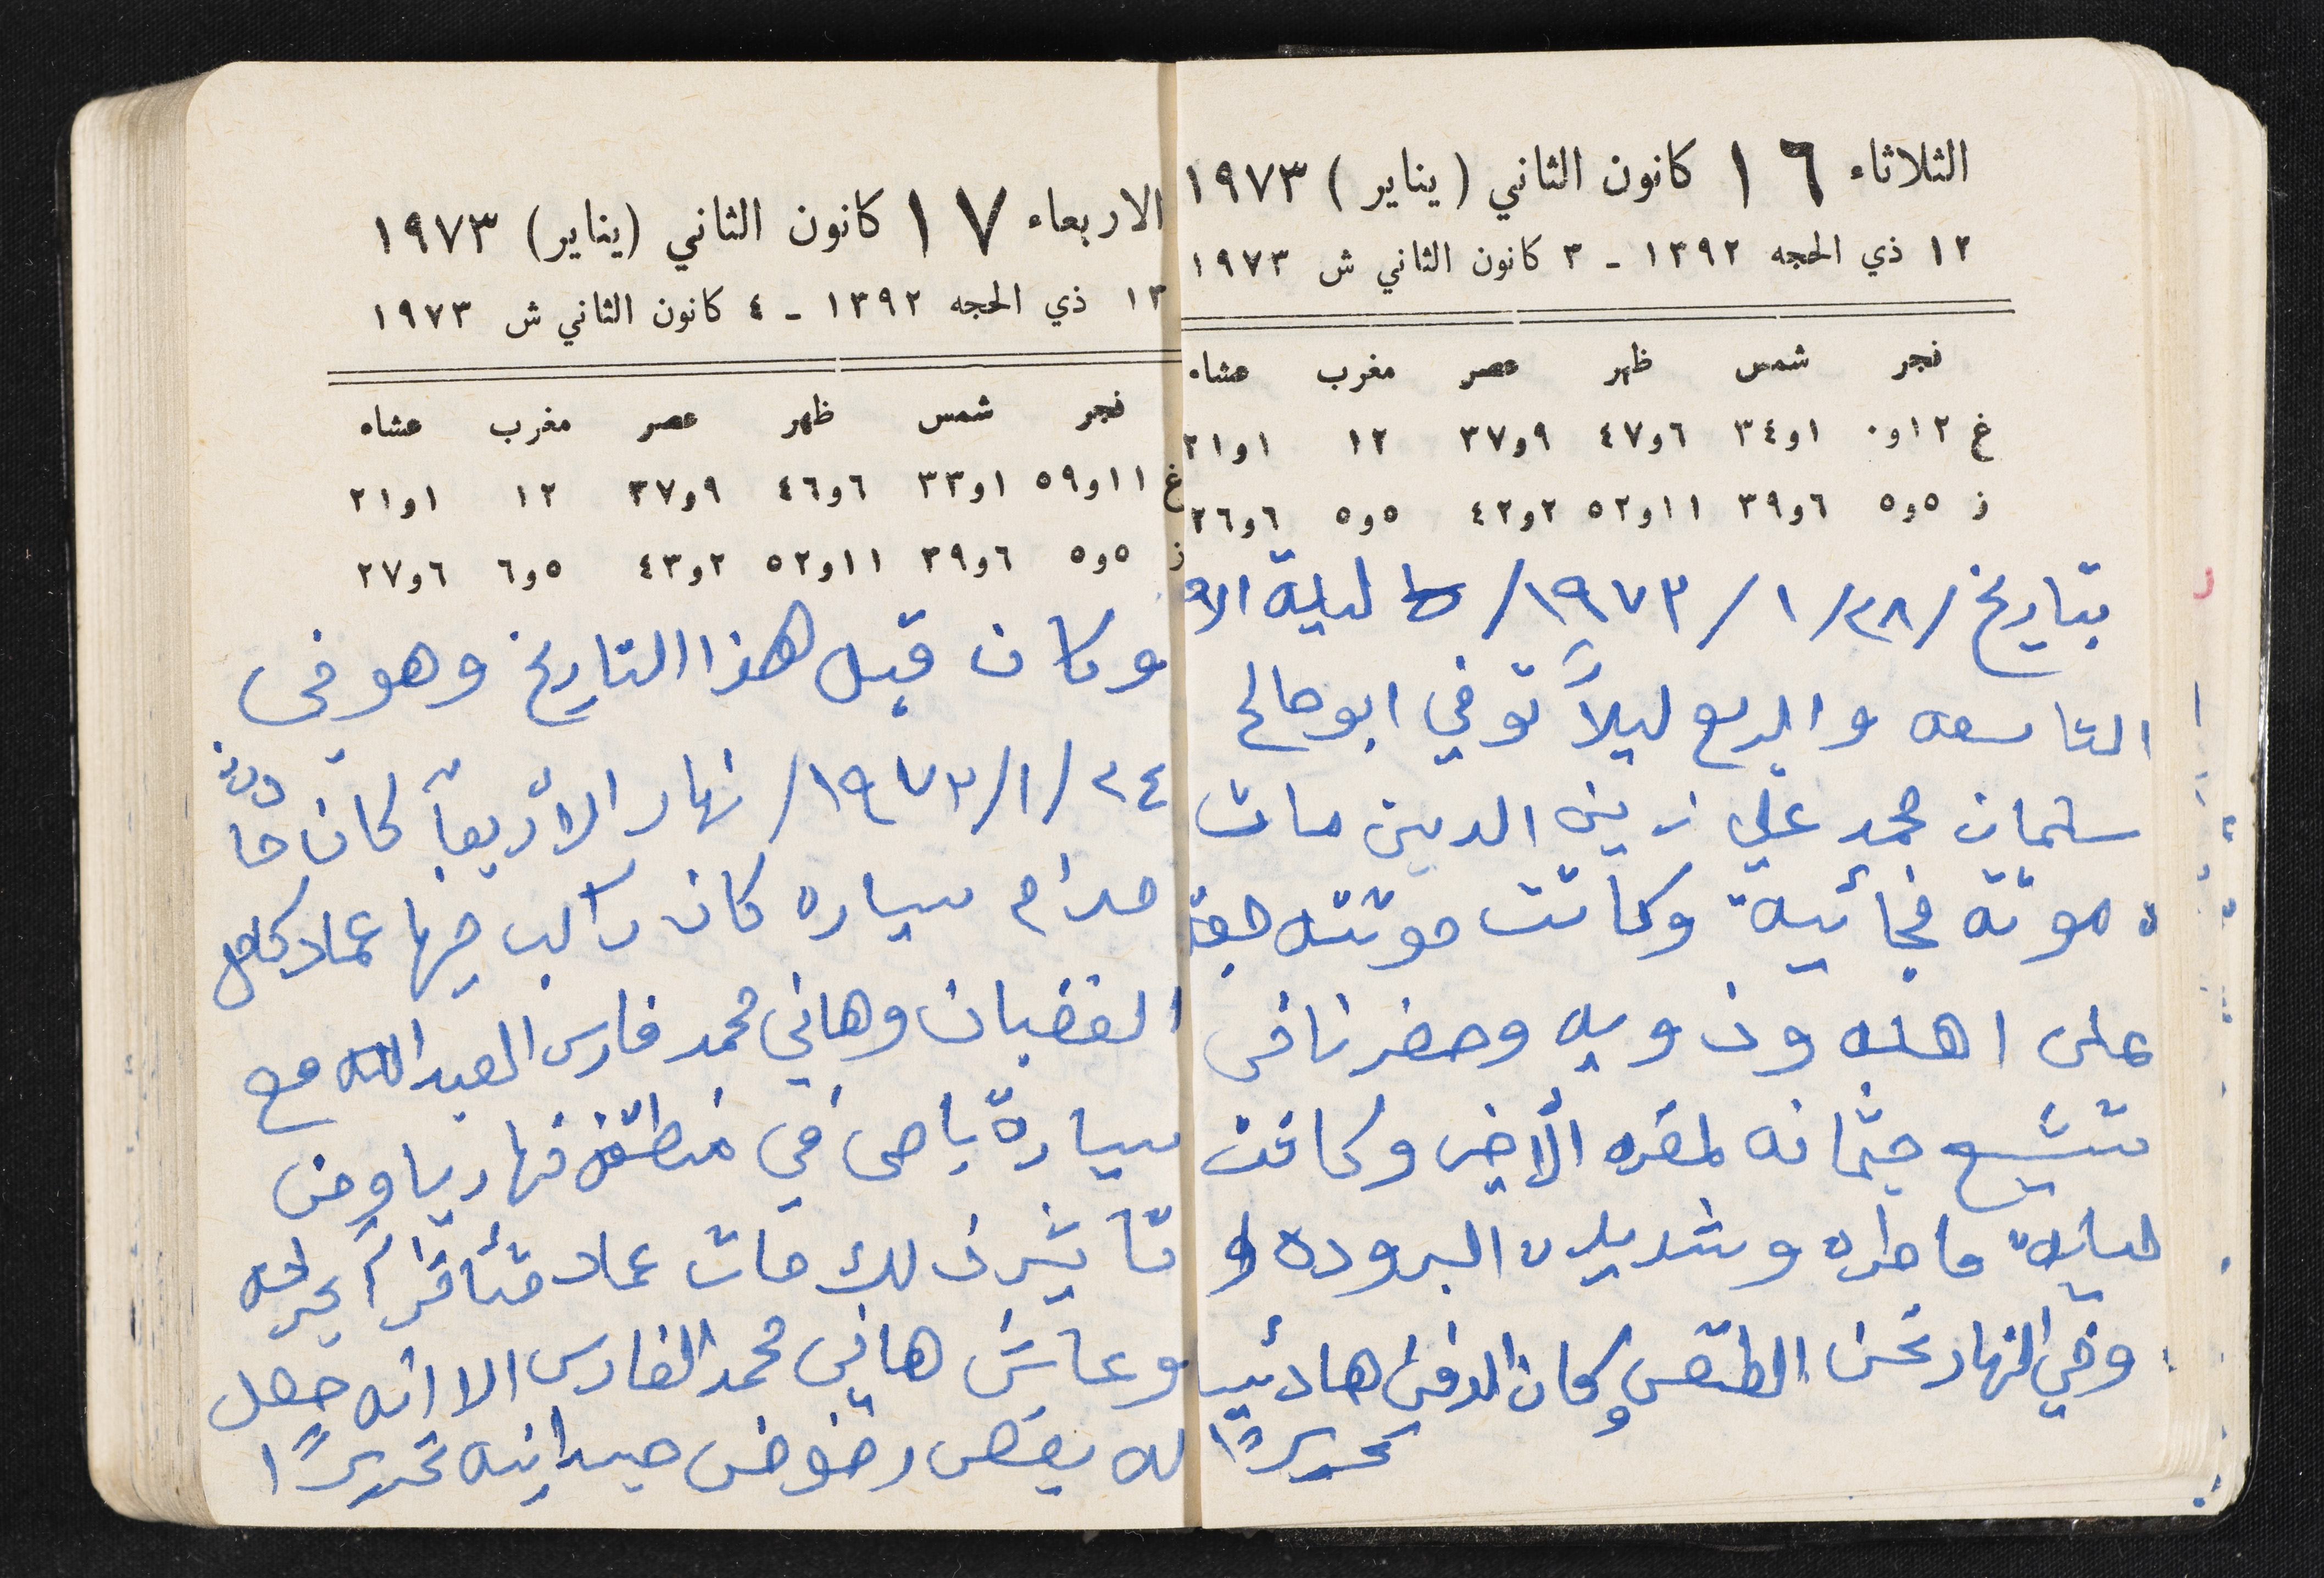 الثلاثاء ١٦ كانون الثاني (يناير) ١٩٧٣
١٢ ذي الحجه ١٣٩٢ - ٣ كانون الثاني ش ١٩٧٣
فجر شمس ظهر عصر مغرب عشاء
غ ١٢و٠ ١و٣٤ ٦و٤٧ ٩و٣٧ ١٢ ١و٢١
ز ٥و٥ ٦و٣٩ ١١و٥٢ ٢و٤٢ ٥و٥ ٦و٢٦
بتاريخ /٢٨/ ١/ ١٩٧٣/ ليلة
التاسعه والربع ليلاً توفي ابو صالح
سلمان محمد علي زين الدين مات
موتة فجائية وكانت موتته
على اهله وذويه وحضرنا في
تشيع جثمانه لمقره الأخير وكانت
ليلة ماطره وشديدة البروده و
وفي النهار تحسن الطقس وكان الدفن هادئ
تحريرًا
الاربعاء ١٧ كانون الثاني (يناير) ١٩٧٣
١٣ ذي الحجه ١٣٩٢ - ٤ كانون الثاني ش ١٩٧٣
فجر شمس ظهر عصر مغرب عشاء
غ ١١و٥٩ ١و٣٣ ٦و٤٦ ٩و٣٧ ١٢ ١و٢١
ز ٥و٥ ٦و٣٩ ١١و٥٢ ٢و٤٣ ٥و٦ ٦و٢٧
وكان قبل هذا التاريخ وهو في
٢٤/ ١/ ١٩٧٣/ نهار الأربعا كان حادث
صدام سياره كان راكب فيها عماد كامل
الغضبان وهاني محمد فارس العبدالله مع
سيارة باص في منطقة نهاريا ومن
تأثير ذلك مات عماد متأثراً بجراحه
وعاش هاني محمد الفارس الا انه حصل
له بعض رضوض ميدانيه تحريرًا